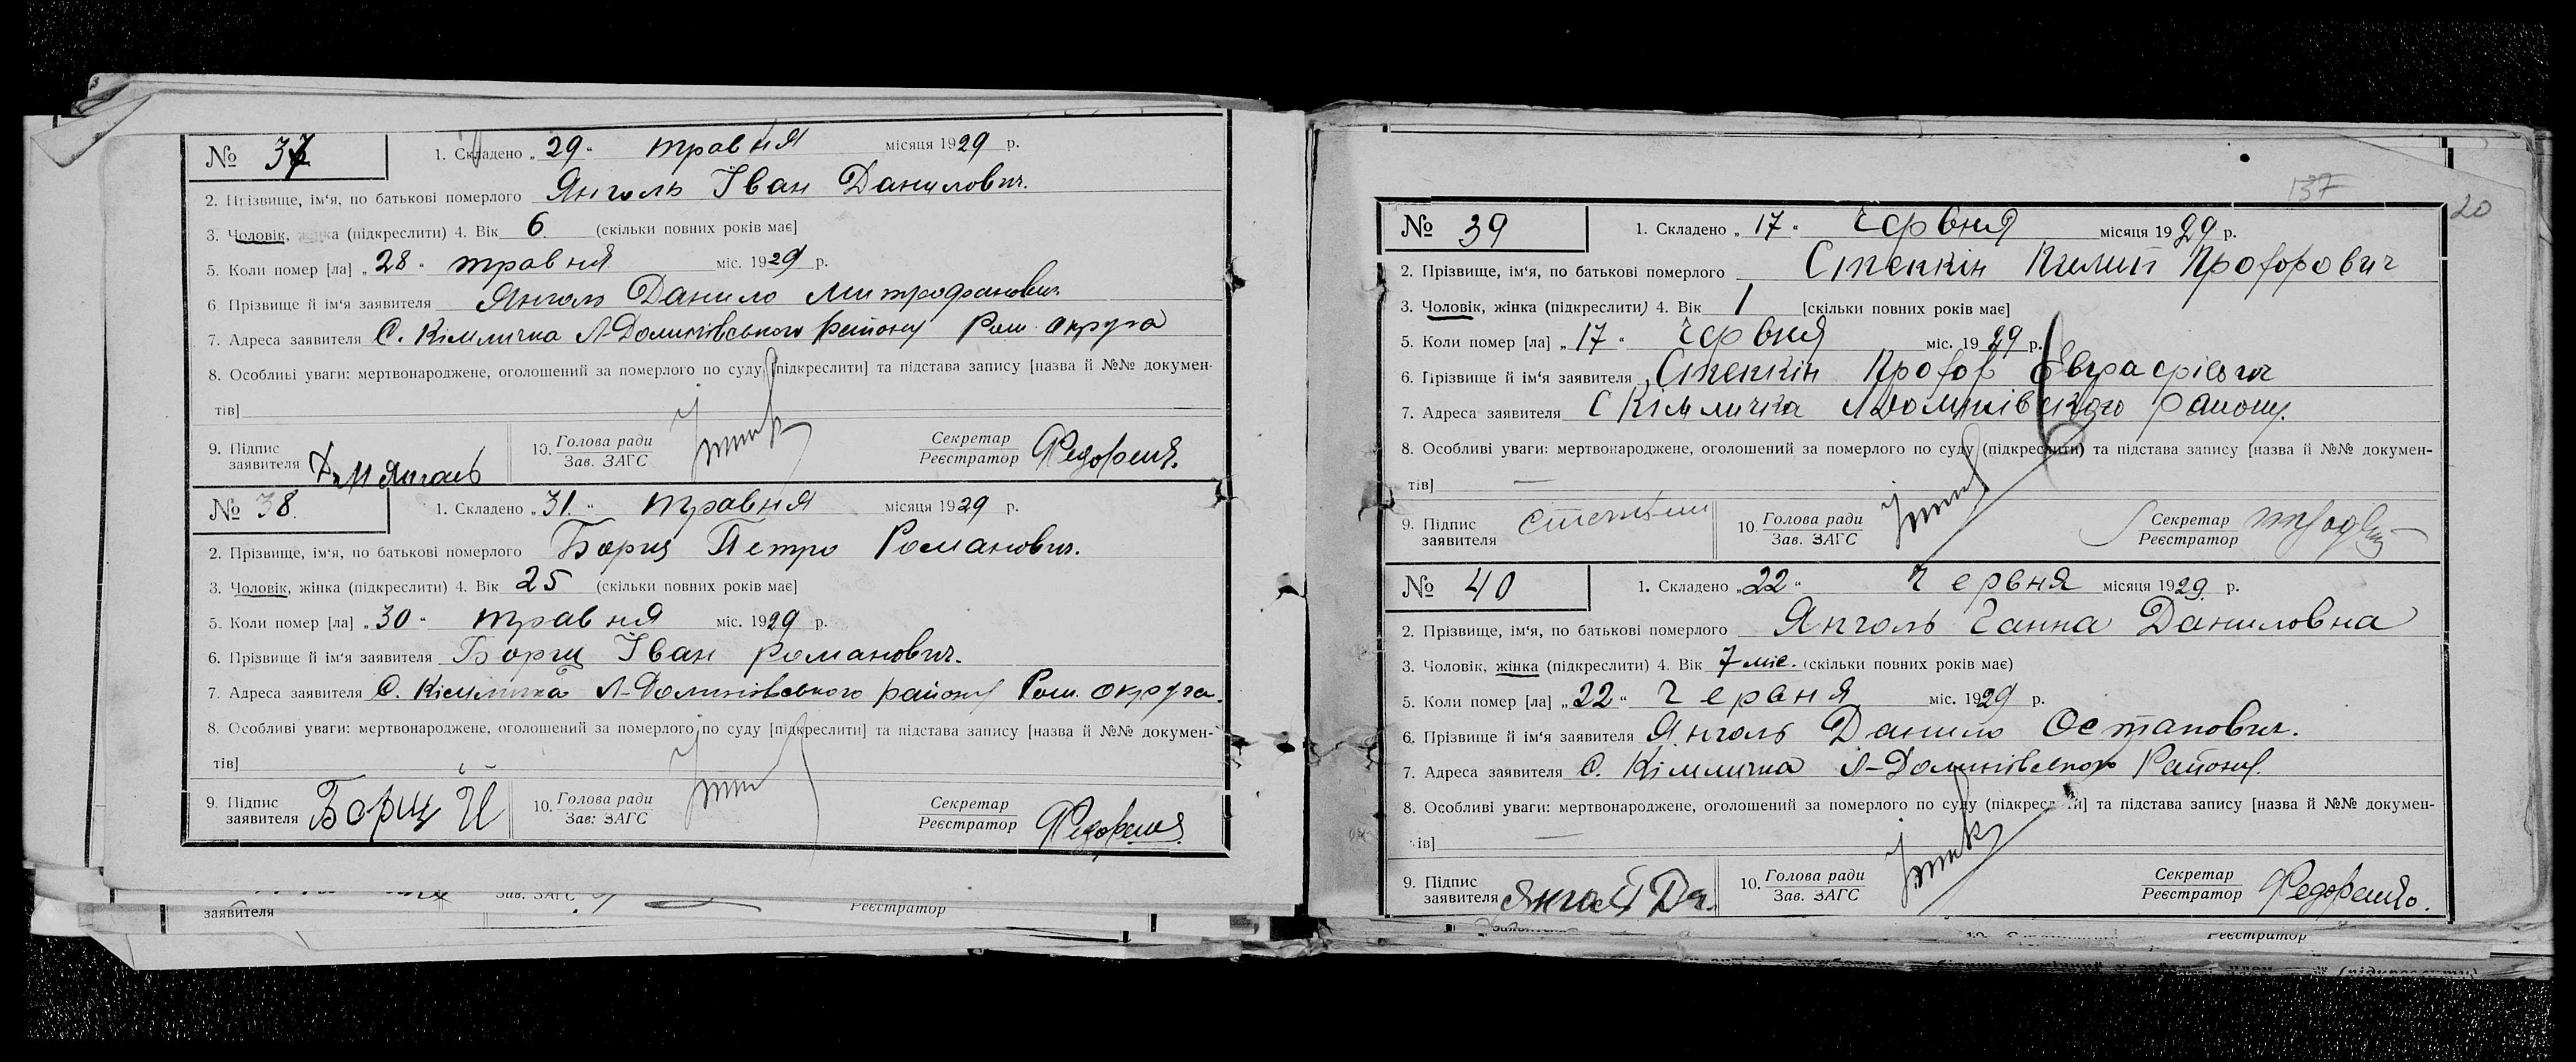 № 37 1. Складено „29“ травня місяця 1929 р.
2. Прізвище, ім‘я, по батькові померлого Янголь Іван Данилович.
3. Чоловік, жінка (підкреслити) 4. Вік 6 (скільки повних років має]
5. Коли помер [ла] „28“ травня міс. 1929 р.
6 Прізвище й ім‘я заявителя Янголь Данило Митрофанович
7. Адреса заявителя С. Кімличка Л-Долинівського району Ром. округа
8. Особливі уваги: мертвонароджене, оголошений за померлого по суду [підкреслити] та підстава запису [назва й №№ докумен-
тів]
9. Підпис заявителя Д М Янголь 10. Голова ради Зав. ЗАГС Секретар Реєстратор
№ 38. 1. Складено „31.“ травня місяця 1929 р.
2. Прізвище, ім‘я, по батькові померлого Борщ Петро Романович.
3. Чоловік, жінка (підкреслити) 4. Вік 25 (скільки повних років має]
5. Коли помер [ла] „30“ травня міс. 1929 р.
6. Прізвище й ім‘я заявителя Борщ Іван Романович.
7. Адреса заявителя С. Кімличка Л-Долинівського району Ром. округа.
8. Особливі уваги: мертвонароджене, оголошений за померлого по суду [підкреслити] та підстава запису [назва й №№ докумен-
тів]
9. Підпис заявителя Борщ Й 10. Голова ради Зав: ЗАГС Секретар Реєстратор
заявителя Зав. ЗАГС Реєстратор
137
20
№ 39 1. Складено „17“ Червня місяця 1929 р.
2. Прізвище, ім‘я, по батькові померлого Степкін Профорович
3. Чоловік, жінка (підкреслити) 4. Вік 1 [скільки повних років має]
5. Коли помер [ла] „17“ Червня міс. 1929 р.
6. Прізвище й ім‘я заявителя Степкін Профор
7. Адреса заявителя С Кімличка Л Долинівського району.
8. Особливі уваги: мертвонароджене, оголошений за померлого по суду (підкреслити) та підстава запису [назва й №№ докумен-
тів] —
9. Підпис заявителя 10. Голова ради Зав. ЗАГС Секретар Реєстратор
№ 40 1. Складено „22“ Червня місяця 1929 р.
2. Прізвище, ім‘я, по батькові померлого Янголь Ганна Даниловна
3. Чоловік, жінка (підкреслити) 4. Вік 7 міс. (скільки повних років має)
5. Коли помер [ла] „22“ Червня міс. 1929 р.
6. Прізвище й ім‘я заявителя Янголь Данило Остапович.
7. Адреса заявителя С. Кімличка Л-Долинівського Району.
8. Особливі уваги: мертвонароджене, оголошений за померлого по суду (підкреслити] та підстава запису [назва й №№ докумен-
тів] —
9. Підпис заявителя 10. Голова ради Зав. ЗАГС Секретар Реєстратор
Реєстратор